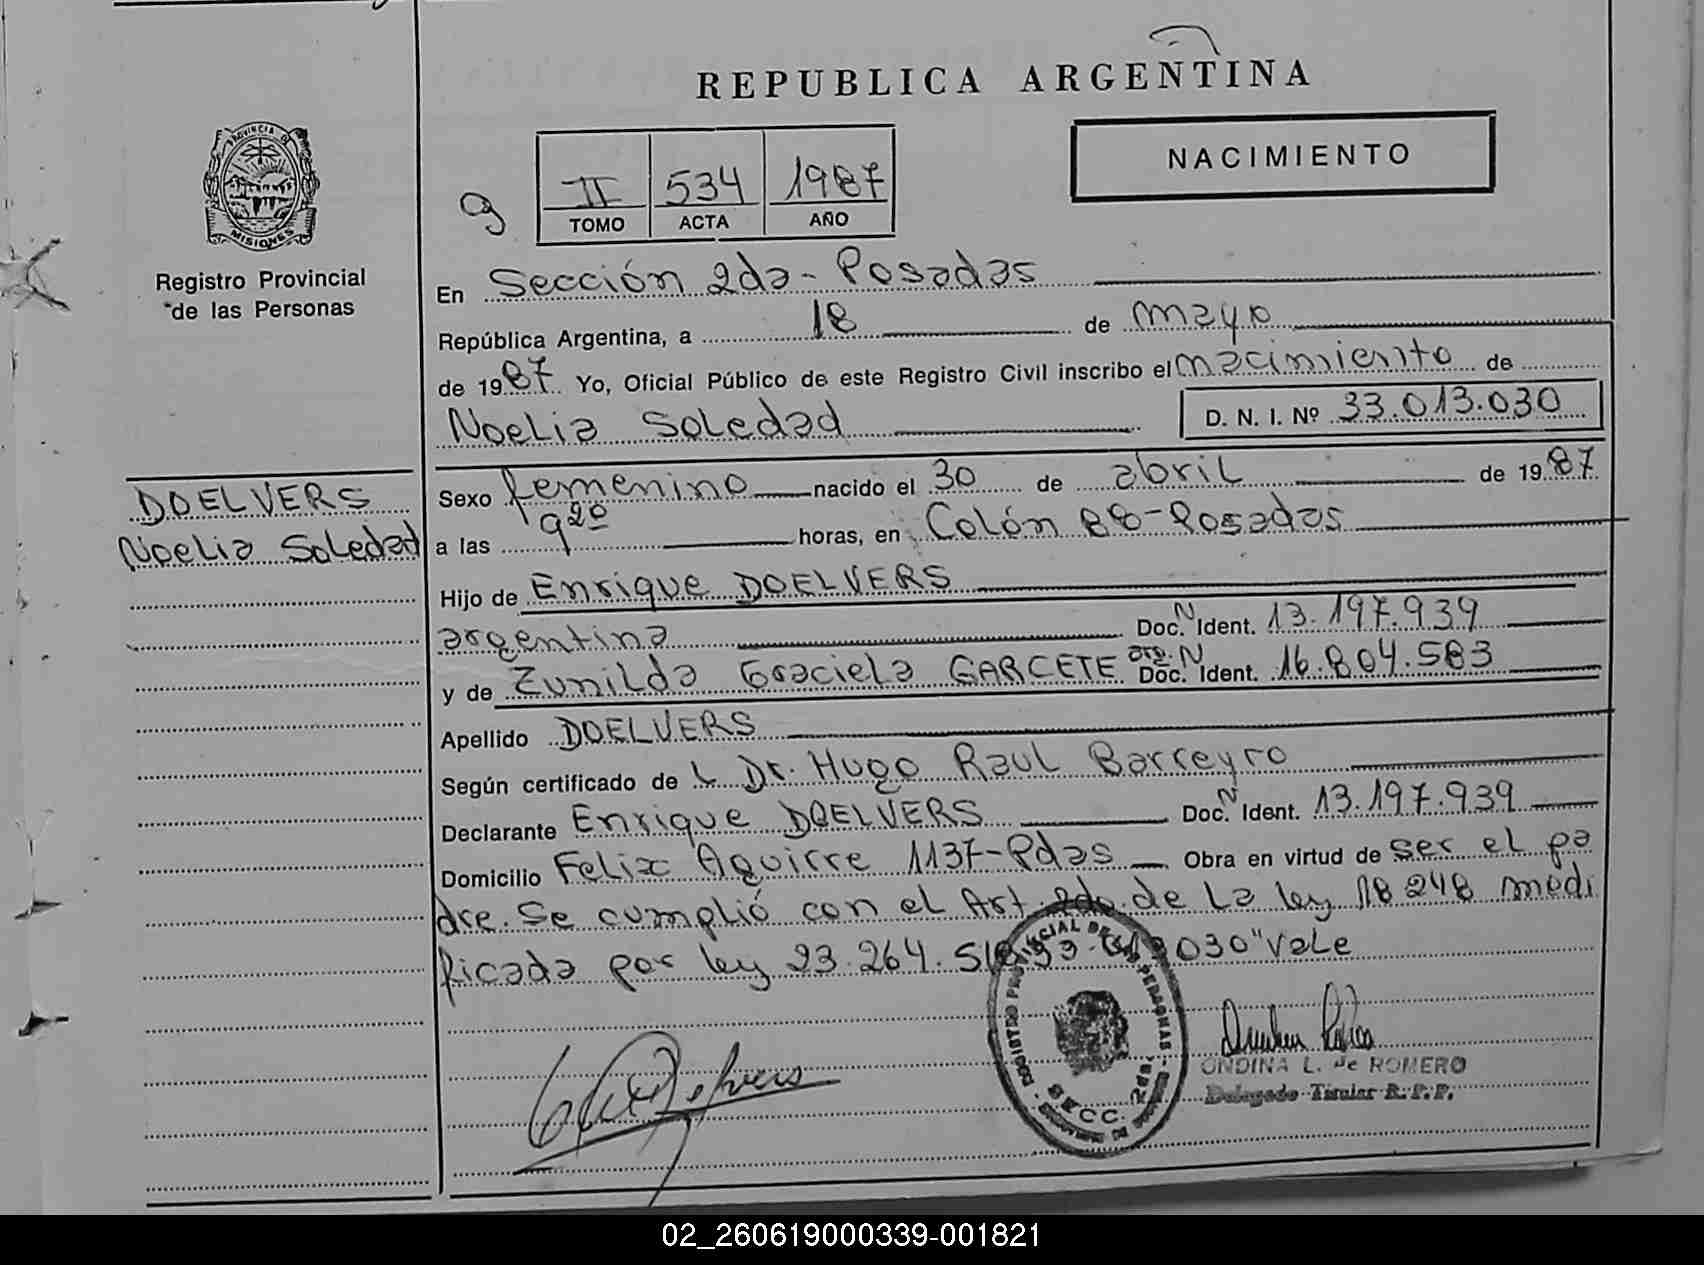 REPUBLICA ARGENTINA
NACIMIENTO
PROVINCIA DE
MISIONES
Registro Provincial
de las Personas
II 534 1987
TOMO ACTA AÑO
En Sección 2da - Posadas
República Argentina, a 18 de mayo
de 1987 Yo, Oficial Público de este Registro Civil inscribo el nacimiento de
Noelia Soledad D. N. I. Nº 33.013.030
DOELVERS
Noelia Soledad
Sexo femenino nacido el 30 de abril de 1987
a las 9 20 horas, en Colón 88 - Posadas
Hijo de Enrique DOELVERS
argentina Doc. N Ident. 13.197.939
y de Zunilda Graciela GARCETE arg. Doc. N Ident. 16.804.583
Apellido DOELVERS
Según certificado de L Dr. Hugo Raul Barreyro
Declarante Enrique DOELVERS Doc. N Ident. 13.197.939
Domicilio Felix Aguirre 1137 - Pdas Obra en virtud de ser el pa
dre. Se cumplió con el Art. 2do. de la ley 18248 modi
ficada por ley 23.264. 030" Vale
SECC.
ONDINA L. de ROMERO
Delegado Titular R. P. P.
02_260619000339-001821